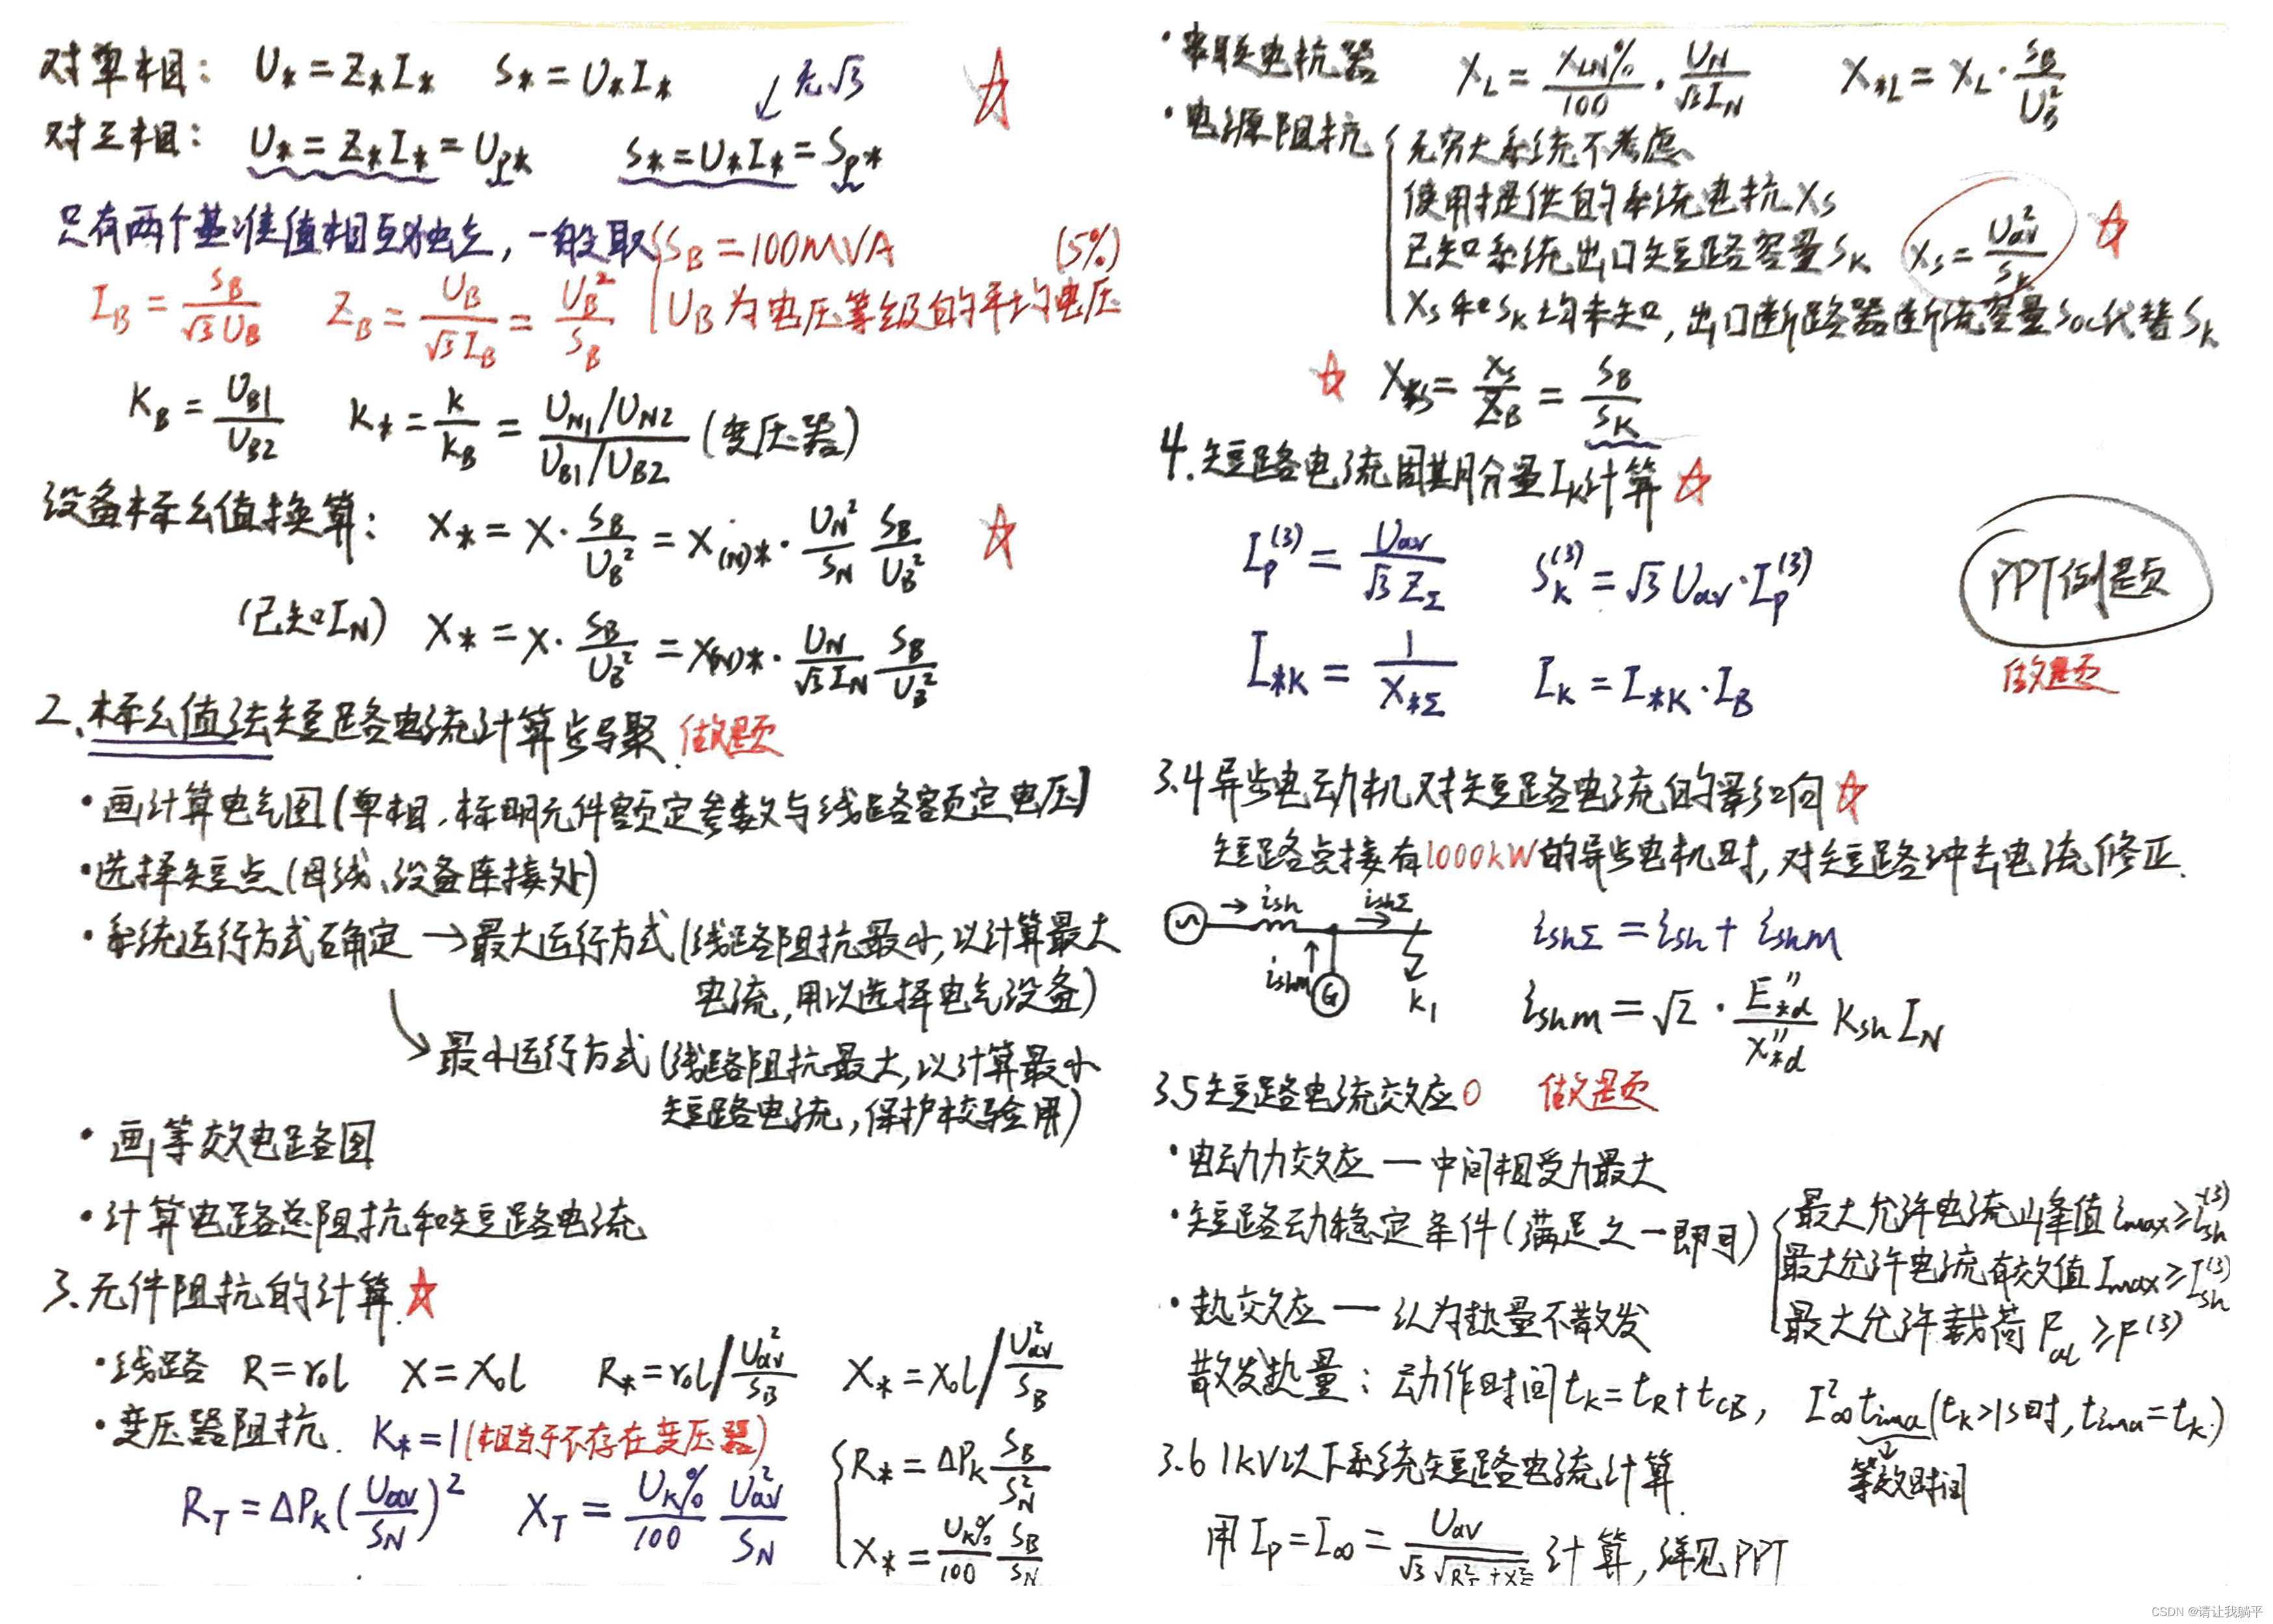 对单相： U* = Z*I*  S* = U*I*  无√3
对三相： U* = Z*I* = Up*  S* = U*I* = Sp*
只有两个基准值相互独立，一般取 { SB = 100MVA (5%)
UB 为电压等级的平均电压
IB = SB/(√3UB)  ZB = UB/(√3IB) = UB²/SB
KB = UB1/UB2  K* = K/KB = (UN1/UN2)/(UB1/UB2) (变压器)
设备标幺值换算： X* = X·SB/UB² = X(N)*·UN²/SN SB/UB²
(已知IN) X* = X·SB/UB² = X(N)*·UN/(√3IN) SB/UB²
2、标幺值法短路电流计算步骤. 做题
·画计算电气图(单相，标明元件额定参数与线路额定电压)
·选择短点(母线、设备连接处)
·系统运行方式确定 → 最大运行方式(线路阻抗最小,以计算最大
电流,用以选择电气设备)
↘ 最小运行方式(线路阻抗最大,以计算最小
短路电流,保护校验用)
·画等效电路图
·计算电路总阻抗和短路电流
3、元件阻抗的计算.
·线路 R=r₀l  X=X₀l  R*=r₀l/(Uav²/SB)  X*=X₀l/(Uav²/SB)
·变压器阻抗. K*=1(相当于不存在变压器)
RT=ΔPK(Uav/SN)²  XT=UK%/100 Uav²/SN  { R*=ΔPK SB/SN²
X*=UK%/100 SB/SN
·串联电抗器 XL=XLN%/100·UN/(√3IN)  X*L=XL·SB/UB²
·电源阻抗 { 无穷大系统不考虑
使用提供的系统电抗XS
已知系统出口短路容量SK  XS=Uav²/SK
XS和SK均未知,出口断路器断流容量SOC代替SK
X*S=XS/ZB=SB/SK
4.短路电流周期分量IK计算
Ip(3)=Uav/(√3ZΣ)  SK(3)=√3Uav·Ip(3)
I*K=1/X*Σ  IK=I*K·IB
PPT例题
做题
3.4异步电动机对短路电流的影响
短路点接有1000kW的异步电机时,对短路冲击电流修正.
ish ishΣ ishm G K1
ishΣ=ish+ishm
ishm=√2·E″*d/X″*d Ksh IN
3.5短路电流效应 做题
·电动力效应—中间相受力最大
·短路动稳定条件(满足之一即可) { 最大允许电流峰值imax≥ish(3)
最大允许电流有效值Imax≥Ish(3)
最大允许载荷Fal≥F(3)
·热效应—认为热量不散发
散发热量：动作时间tK=tR+tCB, I∞²tima(tK>1s时,tima=tK)
等效时间
3.6 1kV以下系统短路电流计算.
用Ip=I∞=Uav/(√3√(RΣ²+XΣ²))计算,详见PPT
CSDN @请让我躺平